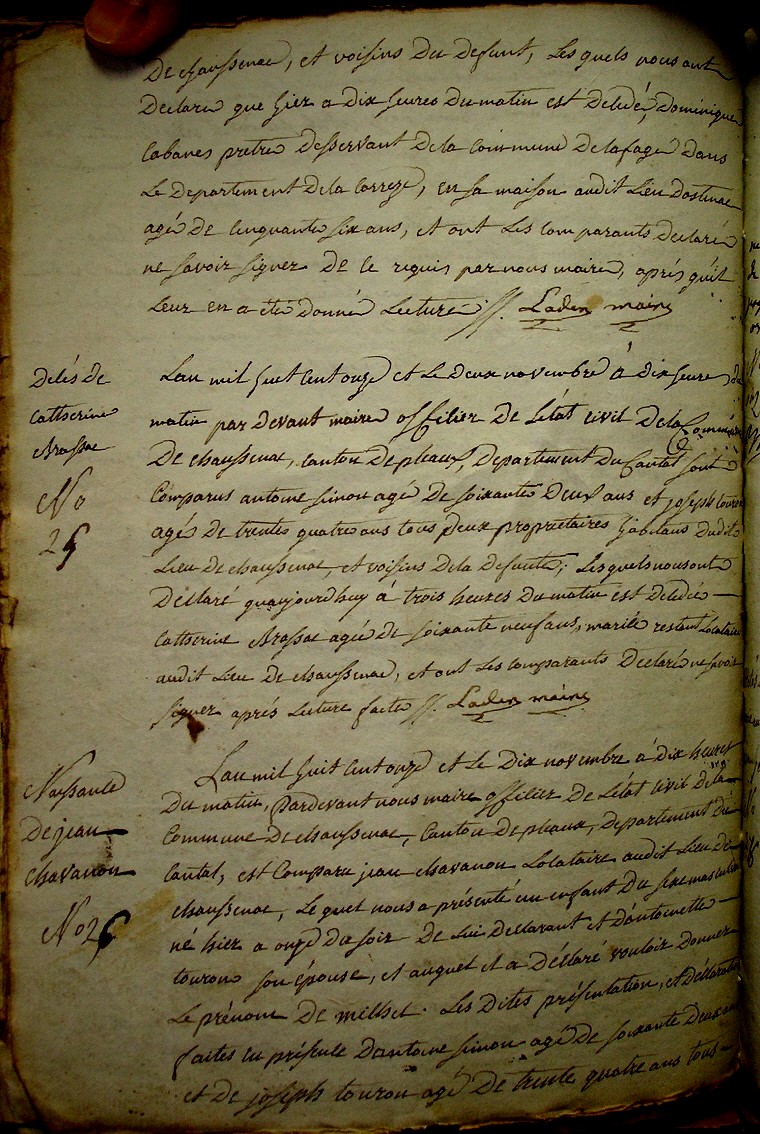 De chaussenac, et voisins du defunt, Les quels nous ont
Declaré que hier a dix heures du matin est décédé, Dominique
Cabanes prêtre desservant de la commune de lafage Dans
Le Departement de la Correze, en sa maison audit Lieu
agé de Cinquante six ans, et ont Les Comparants Declaré
ne savoir signer de ce requis par nous maire, aprés quil
Leur en a été donné Lecture //. Laden maire
Decés de
Catherine
Brassac
No
25
Lan mil huit cent onze et Le deux novembre à dix heures du
matin par devant maire officier de Létat civil de la Commune
De chaussenac, Canton de pleaux, Departement du Cantal sont
Comparus antoine simon agé De soixante Deux ans et joseph touron
agé de trente quatre ans tous deux propriétaires habitans dudit
Lieu de chaussenac, et voisins de la defunte, Lesquels nous ont
Déclaré quaujourdhuy à trois heures du matin est décédée —
Catherine Brassac agée de soixante neuf ans, mariée restant Locataire
audit Lieu de chaussenac, et ont Les Comparants Declaré ne savoir
signer aprés Lecture faite //. Laden maire
Naissance
De jean
chavanon
No 26
Lan mil huit cent onze et Le Dix novembre à dix heures
Du matin, Pardevant nous maire officier De Létat civil de la
Commune De chaussenac, Canton De pleaux, Departement du
Cantal, est Comparu jean chavanon Locataire audit Lieu de
chaussenac, Le quel nous a présenté un enfant Du sexe masculin
né hier a onze du soir de Lui Declarant et Dantoinette —
touron son épouse, et auquel il a Déclaré vouloir Donner
Le prénom De . Les Dites présentation, et Déclaration
faites en présence Dantoine simon agé De soixante Deux ans
et De joseph touron agé De trente quatre ans tous —